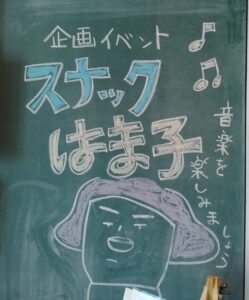 企画イベント
スナック
はま子
音楽を
楽しみましょう